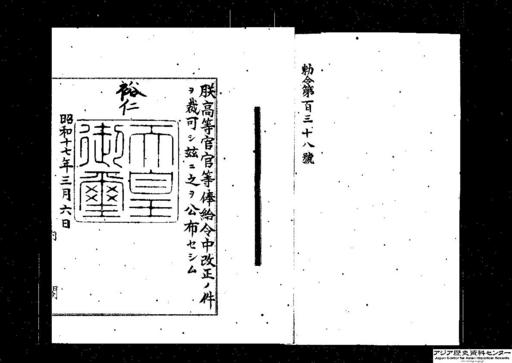 勅令第百三十八號
朕高等官官等俸給令中改正ノ件
ヲ裁可シ茲ニ之ヲ公布セシム
裕仁
天皇御璽
昭和十七年三月六日
内閣
アジア歴史資料センター
Japan Center for Asian Historical Records